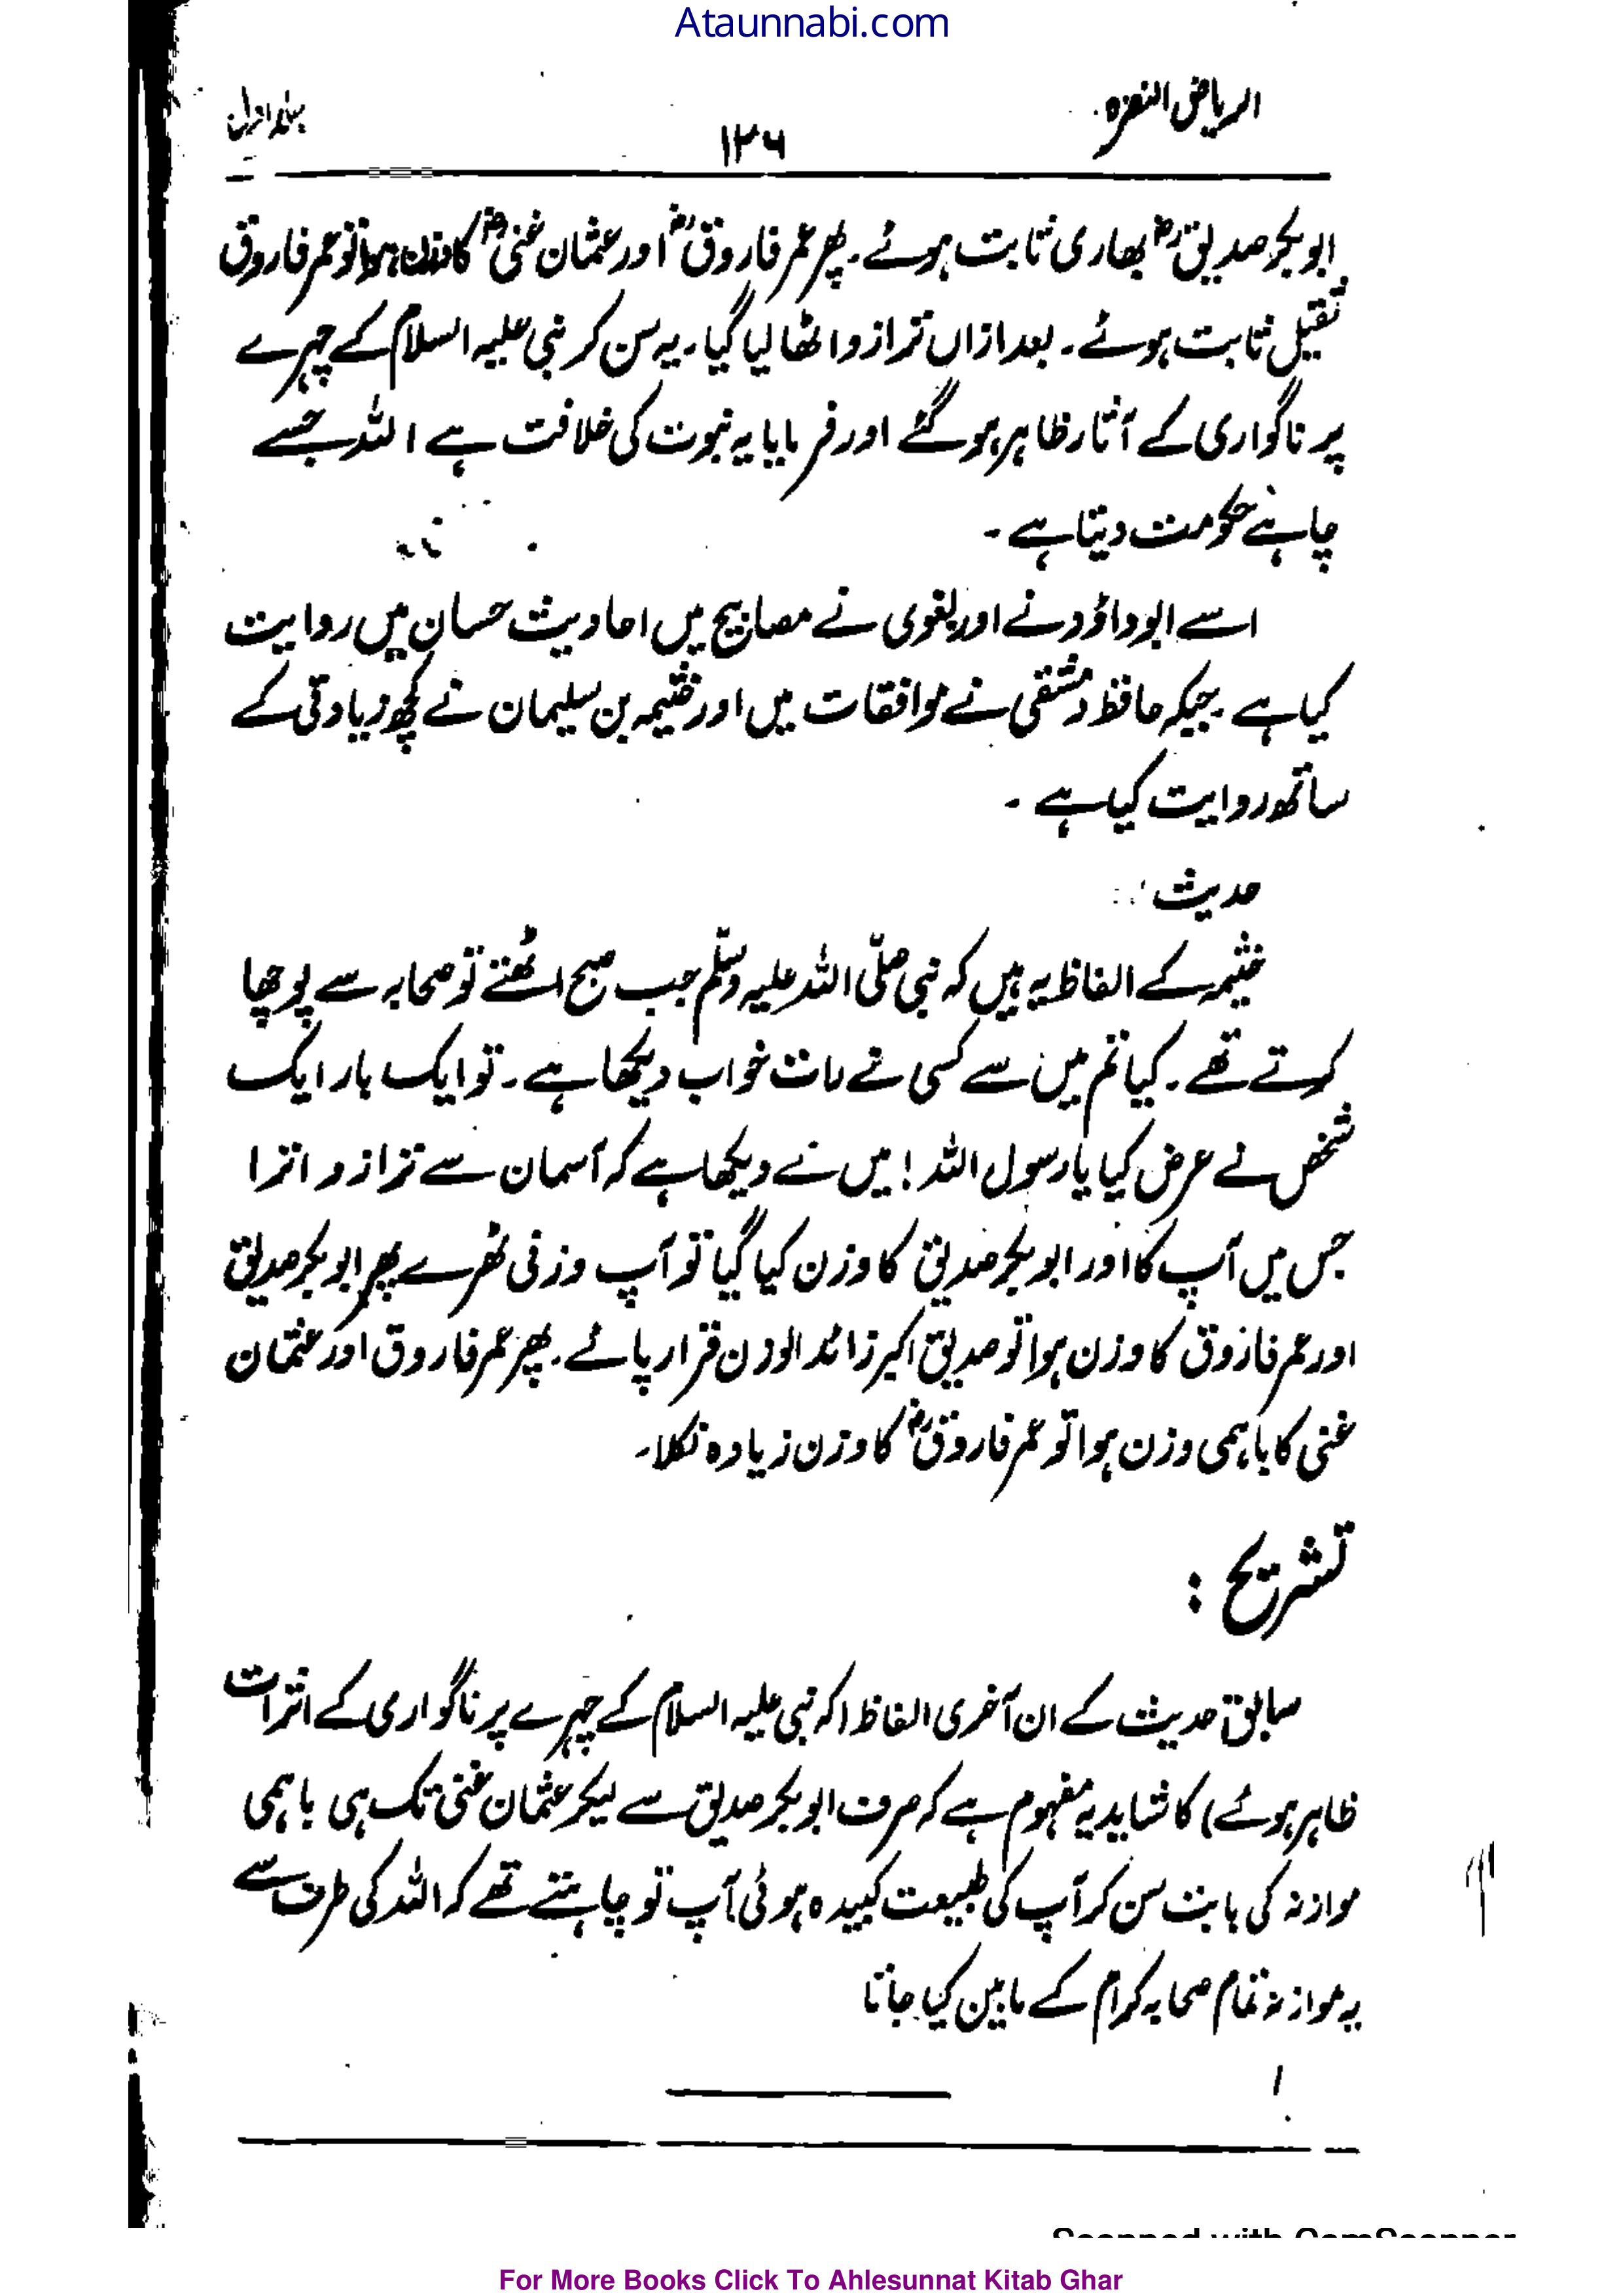 Ataunnabi.com
الریاض النضرہ
۱۳۶
جلد اول
ابو بکر صدیقؓ بھاری ثابت ہوئے۔ پھر عمر فاروقؓ اور عثمان غنیؓ کا وزن ہوا تو عمر فاروق
ثقیل ثابت ہوئے۔ بعد ازاں ترازو اٹھا لیا گیا۔ یہ سن کر نبی علیہ السلام کے چہرے
پر ناگواری کے آثار ظاہر ہو گئے اور فرمایا یہ نبوت کی خلافت ہے اللہ جسے
چاہے حکومت دیتا ہے۔
اسے ابو داؤد نے اور بغوی نے مصابیح میں احادیث حسان میں روایت
کیا ہے۔ جبکہ حافظ دمشقی نے موافقات میں اور خثیمہ بن سلیمان نے کچھ زیادتی کے
ساتھ روایت کیا ہے۔
حدیث :
خثیمہ کے الفاظ یہ ہیں کہ نبی صلّی اللہ علیہ وسلّم جب صبح اٹھتے تو صحابہ سے پوچھا
کرتے تھے۔ کیا تم میں سے کسی نے رات خواب دیکھا ہے۔ تو ایک بار ایک
شخص نے عرض کیا یا رسول اللہ! میں نے دیکھا ہے کہ آسمان سے ترازو اترا
جس میں آپ کا اور ابو بکر صدیق کا وزن کیا گیا تو آپ وزنی ٹھرے پھر ابو بکر صدیق
اور عمر فاروق کا وزن ہوا تو صدیق اکبر زائد الوزن قرار پائے۔ پھر عمر فاروق اور عثمان
غنی کا باہمی وزن ہوا تو عمر فاروقؓ کا وزن زیادہ نکلا۔
تشریح :
سابق حدیث کے ان آخری الفاظ (کہ نبی علیہ السلام کے چہرے پر ناگواری کے اثرات
ظاہر ہوئے) کا شاید یہ مفہوم ہے کہ صرف ابو بکر صدیق سے لیکر عثمان غنی تک ہی باہمی
موازنہ کی بابت سن کر آپ کی طبیعت کبیدہ ہوئی آپ تو چاہتے تھے کہ اللہ کی طرف سے
یہ موازنہ تمام صحابہ کرام کے مابین کیا جاتا
Scanned with CamScanner
For More Books Click To Ahlesunnat Kitab Ghar